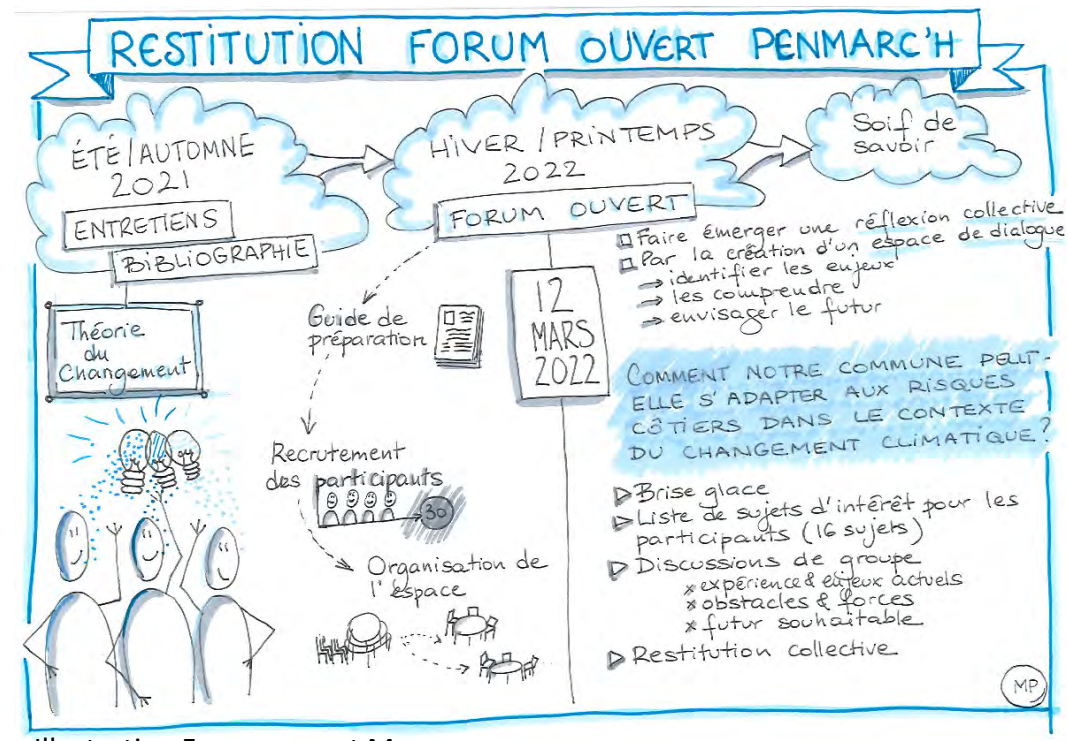 RESTITUTION FORUM OUVERT PENMARC'H
ÉTÉ/AUTOMNE
2021
ENTRETIENS
BIBLIOGRAPHIE
Théorie
du
Changement
HIVER / PRINTEMPS
2022
FORUM OUVERT
Guide de
préparation
Recrutement
des participants
30
Organisation de
l'espace
12
MARS
2022
Soif de
savoir
Faire émerger une réflexion collective
Par la création d'un espace de dialogue
→ identifier les enjeux
→ les comprendre
→ envisager le futur
COMMENT NOTRE COMMUNE PEUT-
ELLE S'ADAPTER AUX RISQUES
CÔTIERS DANS LE CONTEXTE
DU CHANGEMENT CLIMATIQUE?
Brise glace
Liste de sujets d'intérêt pour les
participants (16 sujets)
Discussions de groupe
x expérience & enjeux actuels
x obstacles & forces
x futur souhaitable
Restitution collective
MP